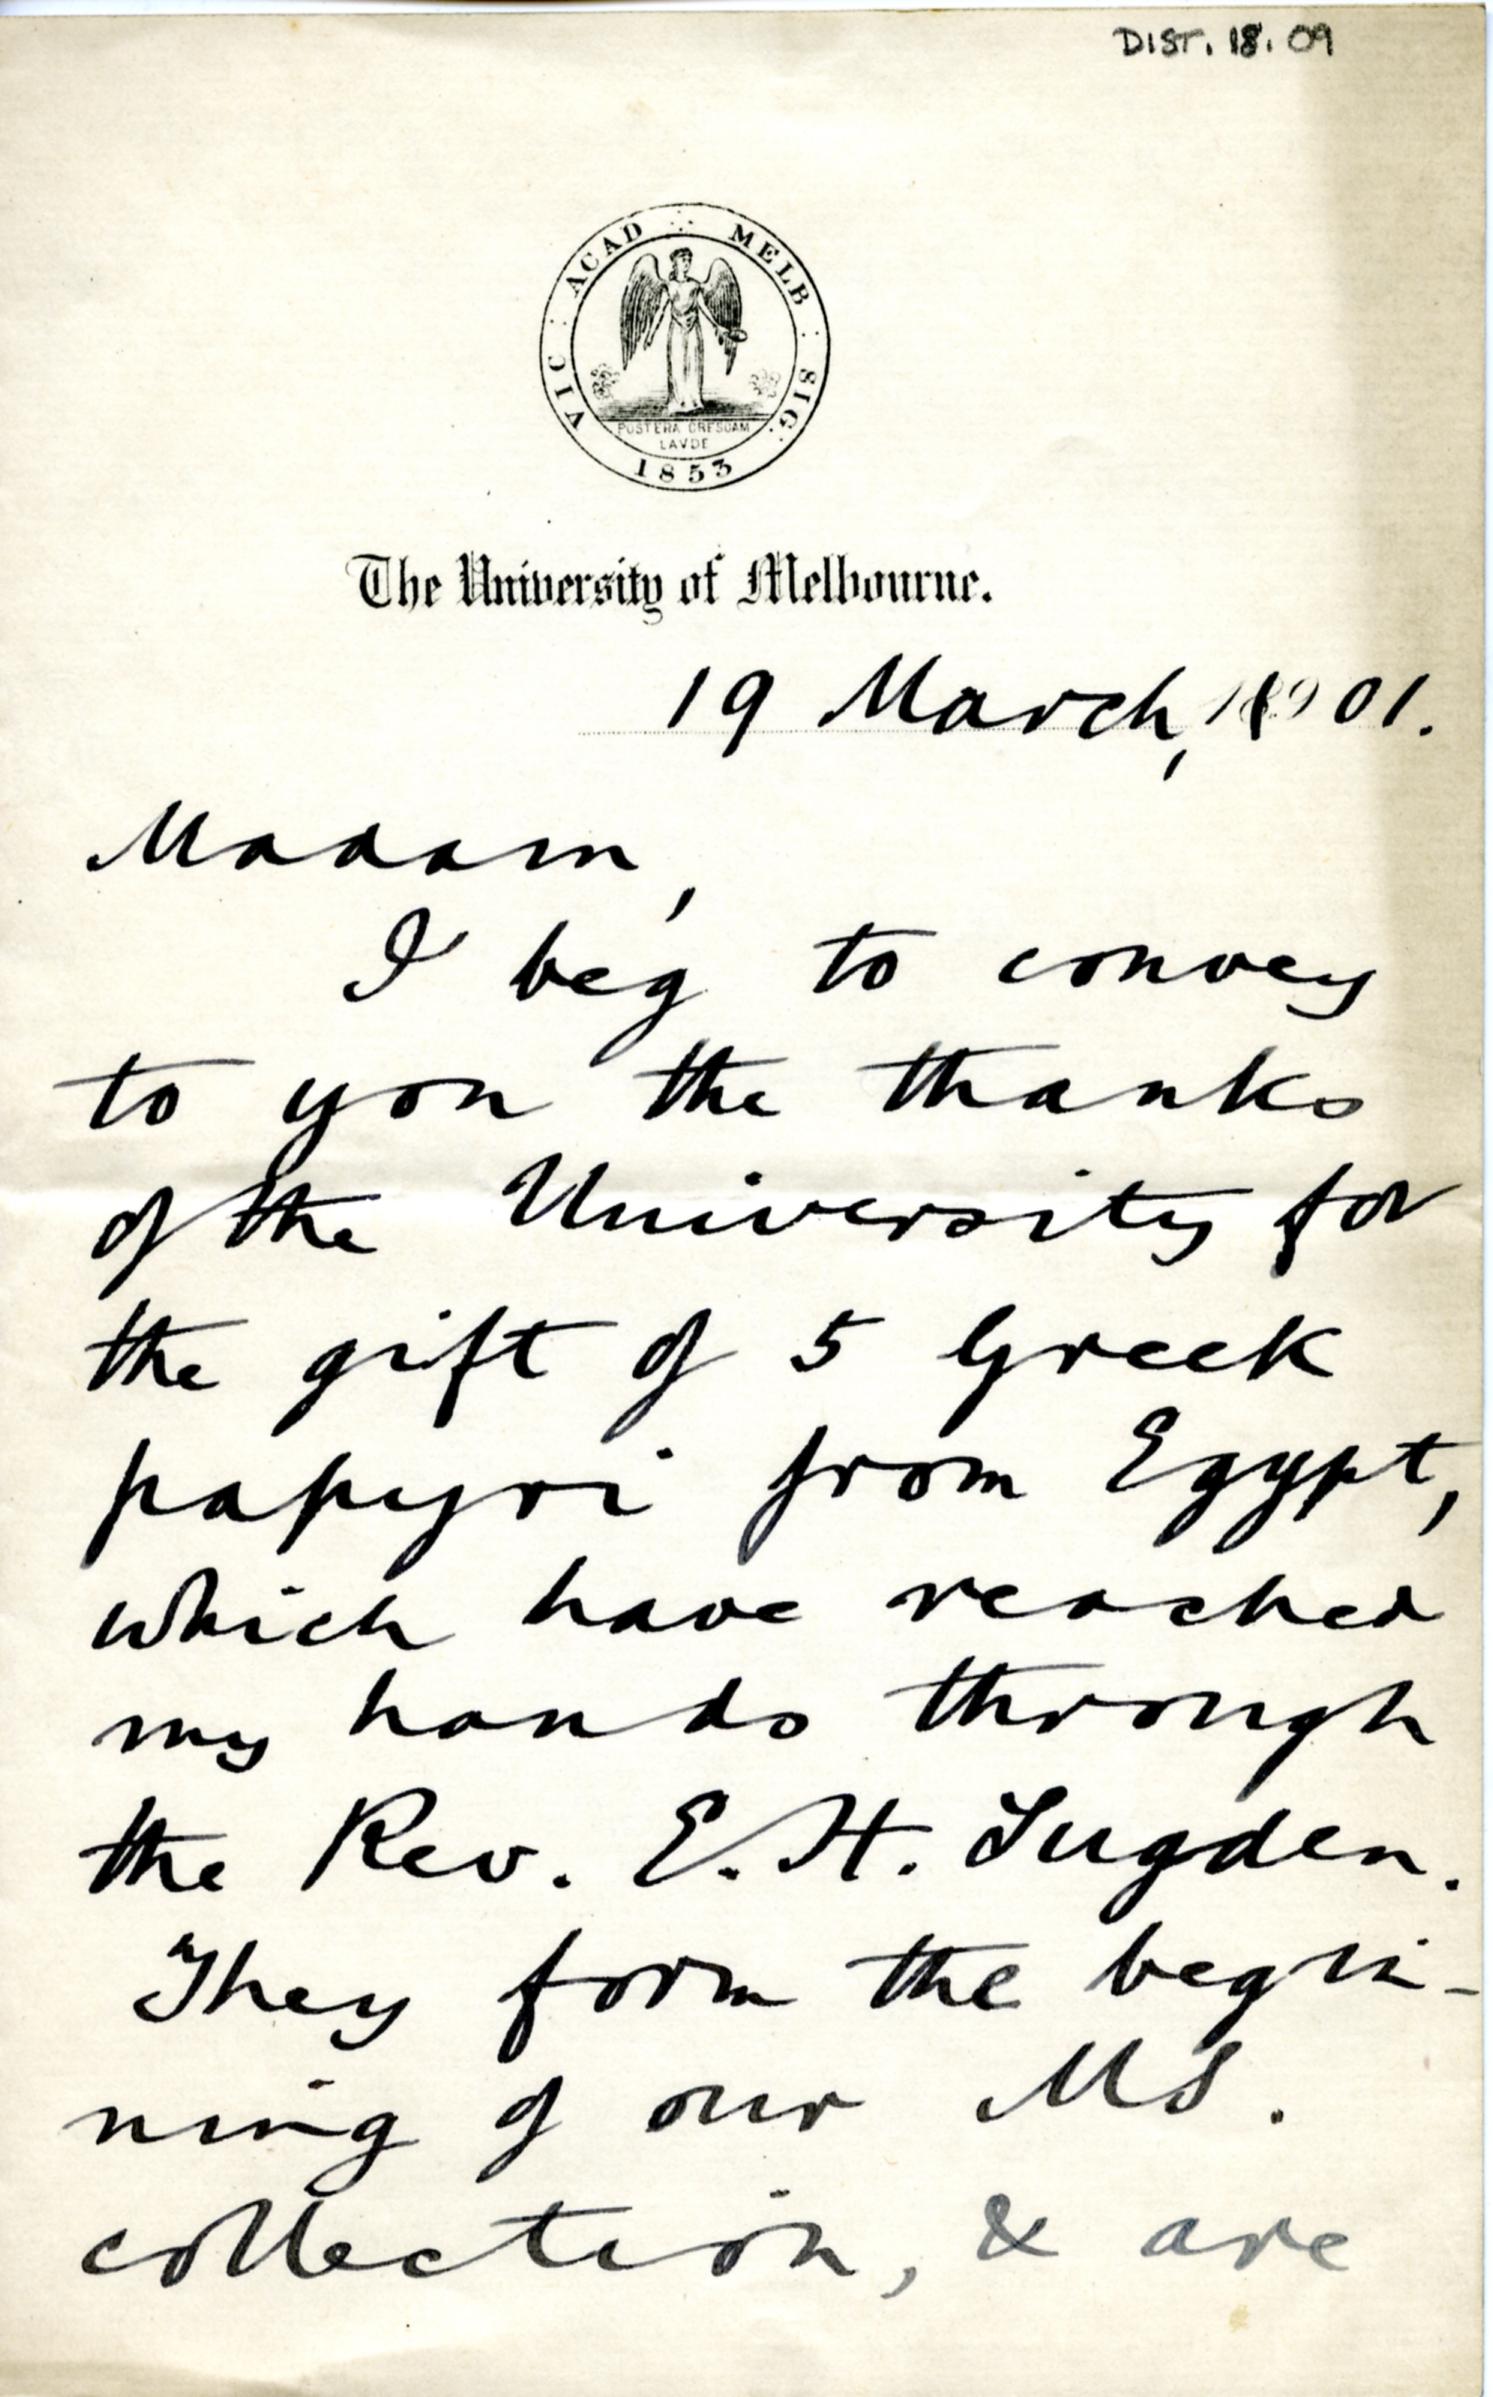 DIST. 18. 09
VIC ACAD MELB SIG.
POSTERA CRESCAM
LAVDE
1853
The University of Melbourne.
19 March, 1901.
Madam,
I beg to convey
to you the thanks
of the University for
the gift of 5 Greek
papyri from Egypt,
which have reached
my hands through
the Rev. E. H. Sugden.
They form the begin-
ning of our MS.
collection, & are